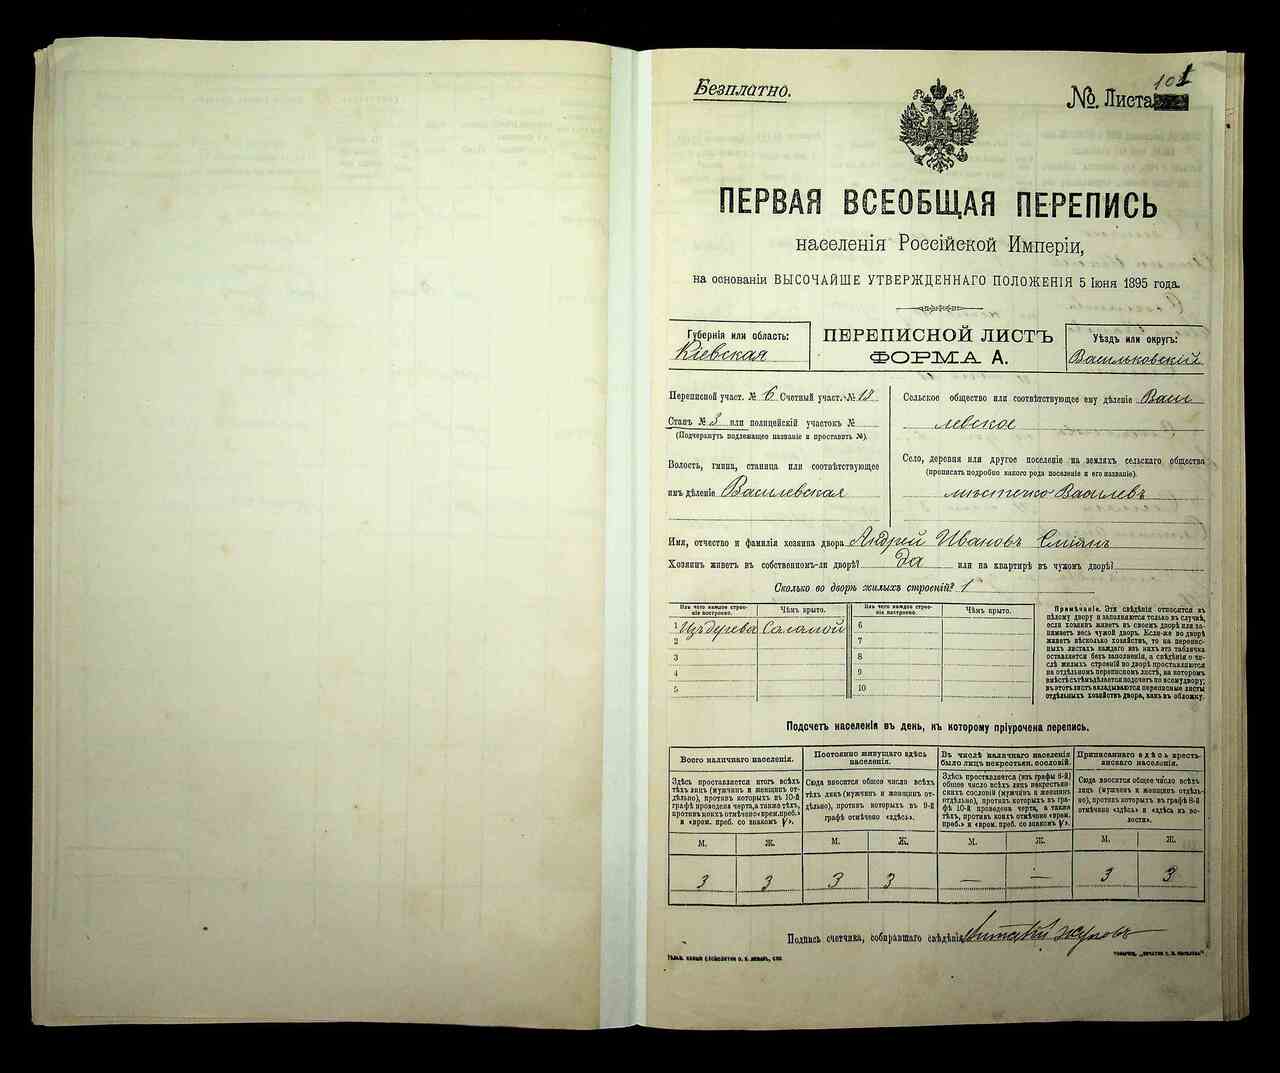 Безплатно.
№. Листа 101
ПЕРВАЯ ВСЕОБЩАЯ ПЕРЕПИСЬ
населенія Россійской Имперіи,
на основаніи ВЫСОЧАЙШЕ УТВЕРЖДЕННАГО ПОЛОЖЕНІЯ 5 Іюня 1895 года.
Губернія или область:
Кіевская
ПЕРЕПИСНОЙ ЛИСТЪ
ФОРМА А.
Уѣздъ или округъ:
Васильковскій
Переписной участ. № 6 Счетный участ. № 18
Станъ № 3 или полицейскій участокъ №
(Подчеркнуть подлежащее названіе и проставить №).
Волость, гмина, станица или соотвѣтствующее
имъ дѣленіе Василевская
Сельское общество или соотвѣтствующее ему дѣленіе Васи
левское
Село, деревня или другое поселеніе на земляхъ сельскаго общества
(прописать подробно какого рода поселеніе и его названіе).
мѣстечко Василевъ
Имя, отчество и фамилія хозяина двора Андрей Ивановъ
Хозяинъ живетъ въ собственномъ-ли дворѣ? Да или на квартирѣ въ чужомъ дворѣ?
Сколько во дворѣ жилыхъ строеній? 1
Изъ чего каждое строе-
ніе построено.
Чѣмъ крыто.
Изъ чего каждое строе-
ніе построено.
Чѣмъ крыто.
1 Изъ дерева Соломой 6
2 7
3 8
4 9
5 10
Примѣчаніе. Эти свѣдѣнія относятся къ
цѣлому двору и заполняются только въ случаѣ,
если хозяинъ живетъ въ своемъ дворѣ или за-
нимаетъ весь чужой дворъ. Если-же во дворѣ
живетъ нѣсколько хозяйствъ, то на перепис-
ныхъ листахъ каждаго изъ нихъ эта табличка
оставляется безъ заполненія, а свѣдѣнія о чи-
слѣ жилыхъ строеній во дворѣ проставляются
на отдѣльномъ переписномъ листѣ, на которомъ
вмѣстѣ съ тѣмъ дѣлается подсчетъ по всему двору;
въ этотъ листъ вкладываются переписные листы
отдѣльныхъ хозяйствъ двора, какъ въ обложку.
Подсчетъ населенія въ день, къ которому пріурочена перепись.
Всего наличнаго населенія.
Постоянно живущаго здѣсь
населенія.
Въ числѣ наличнаго населенія
было лицъ некрестьян. сословій.
Приписаннаго здѣсь кресть-
янскаго населенія.
Здѣсь проставляется итогъ всѣхъ
тѣхъ лицъ (мужчинъ и женщинъ от-
дѣльно), противъ которыхъ въ 10-й
графѣ проведена черта, а также тѣхъ,
противъ коихъ отмѣчено «врем. преб.»
и «врем. преб. со знакомъ V».
Сюда вносится общее число всѣхъ
тѣхъ лицъ (мужчинъ и женщинъ от-
дѣльно), противъ которыхъ въ 9-й
графѣ отмѣчено «здѣсь».
Здѣсь проставляется (изъ графы 6-й)
общее число всѣхъ лицъ некрестьян-
скихъ сословій (мужчинъ и женщинъ
отдѣльно), противъ которыхъ въ гра-
фѣ 10-й проведена черта, а также
тѣхъ, противъ коихъ отмѣчено «врем.
преб.» и «врем. преб. со знакомъ V».
Сюда вносится общее число всѣхъ
лицъ (мужчинъ и женщинъ отдѣль-
но), противъ которыхъ въ графѣ 8-й
отмѣчено «здѣсь» и «здѣсь въ во-
лости».
М. Ж. М. Ж. М. Ж. М. Ж.
3 3 3 3 — — 3 3
Подпись счетчика, собиравшаго свѣдѣнія